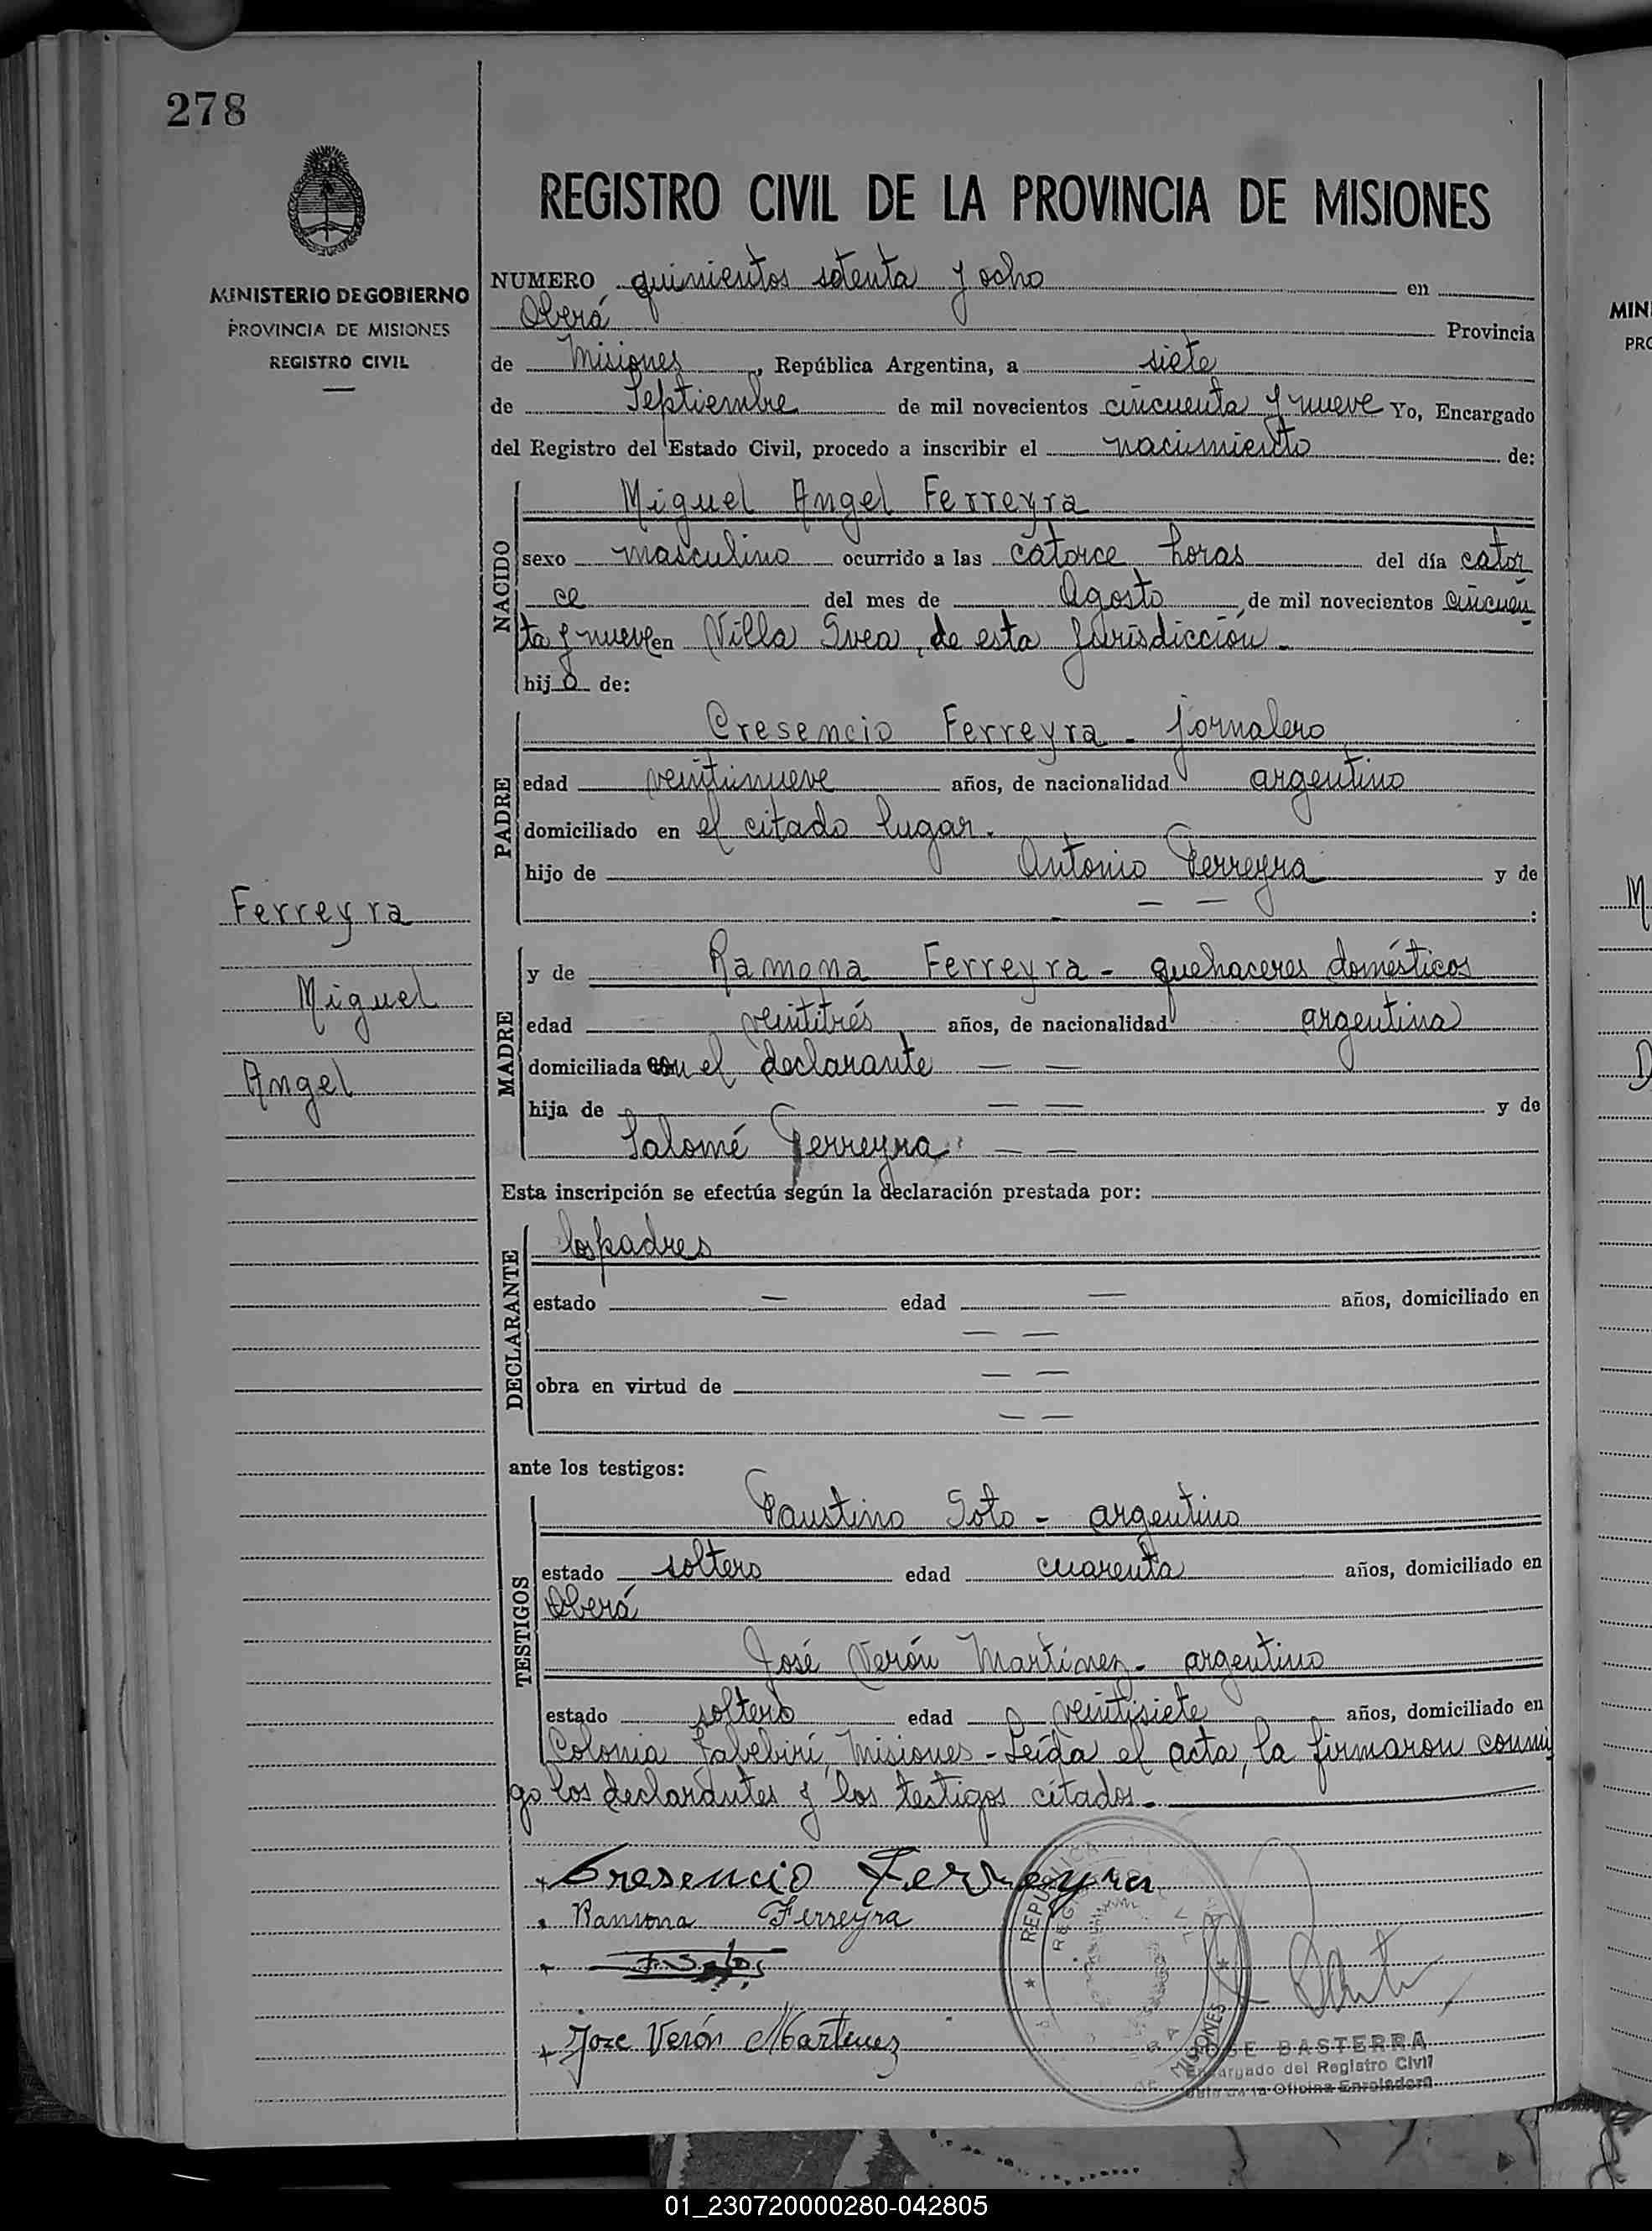 278
REGISTRO CIVIL DE LA PROVINCIA DE MISIONES
MINISTERIO DE GOBIERNO
PROVINCIA DE MISIONES
REGISTRO CIVIL
NUMERO quinientos setenta y ocho en
Oberá Provincia
de Misiones, República Argentina, a siete
de Septiembre de mil novecientos cincuenta y nueve Yo, Encargado
del Registro del Estado Civil, procedo a inscribir el nacimiento de:
NACIDO
Miguel Angel Ferreyra
sexo masculino ocurrido a las catorce horas del día cator
ce del mes de Agosto, de mil novecientos cincuen
ta y nueve en Villa Svea, de esta jurisdicción.-
hijo de:
PADRE
Cresencio Ferreyra - jornalero
edad veintinueve años, de nacionalidad argentino
domiciliado en el citado lugar.
hijo de Antonio Ferreyra y de
— — :
Ferreyra
Miguel
Angel
MADRE
y de Ramona Ferreyra - quehaceres domésticos
edad veintitrés años, de nacionalidad argentina
domiciliada con el declarante — —
hija de — — y de
Salomé Ferreyra — —
Esta inscripción se efectúa según la declaración prestada por:
DECLARANTE
los padres
estado — edad — años, domiciliado en
— —
obra en virtud de — —
— —
ante los testigos:
TESTIGOS
Faustino Soto - argentino
estado soltero edad cuarenta años, domiciliado en
Oberá
José Verón Martínez - argentino
estado soltero edad veintisiete años, domiciliado en
Colonia Yabebirí, Misiones - Leída el acta, la firmaron conmi
go los declarantes y los testigos citados.-
+ Cresencio Ferreyra
Ramona Ferreyra
+ Joze Verón Martinez
REPUBLICA
MISIONES
JOSE BASTERRA
Encargado del Registro Civil
Jefe de la Oficina Enroladora
MIN
PRO
M
D
01_230720000280-042805